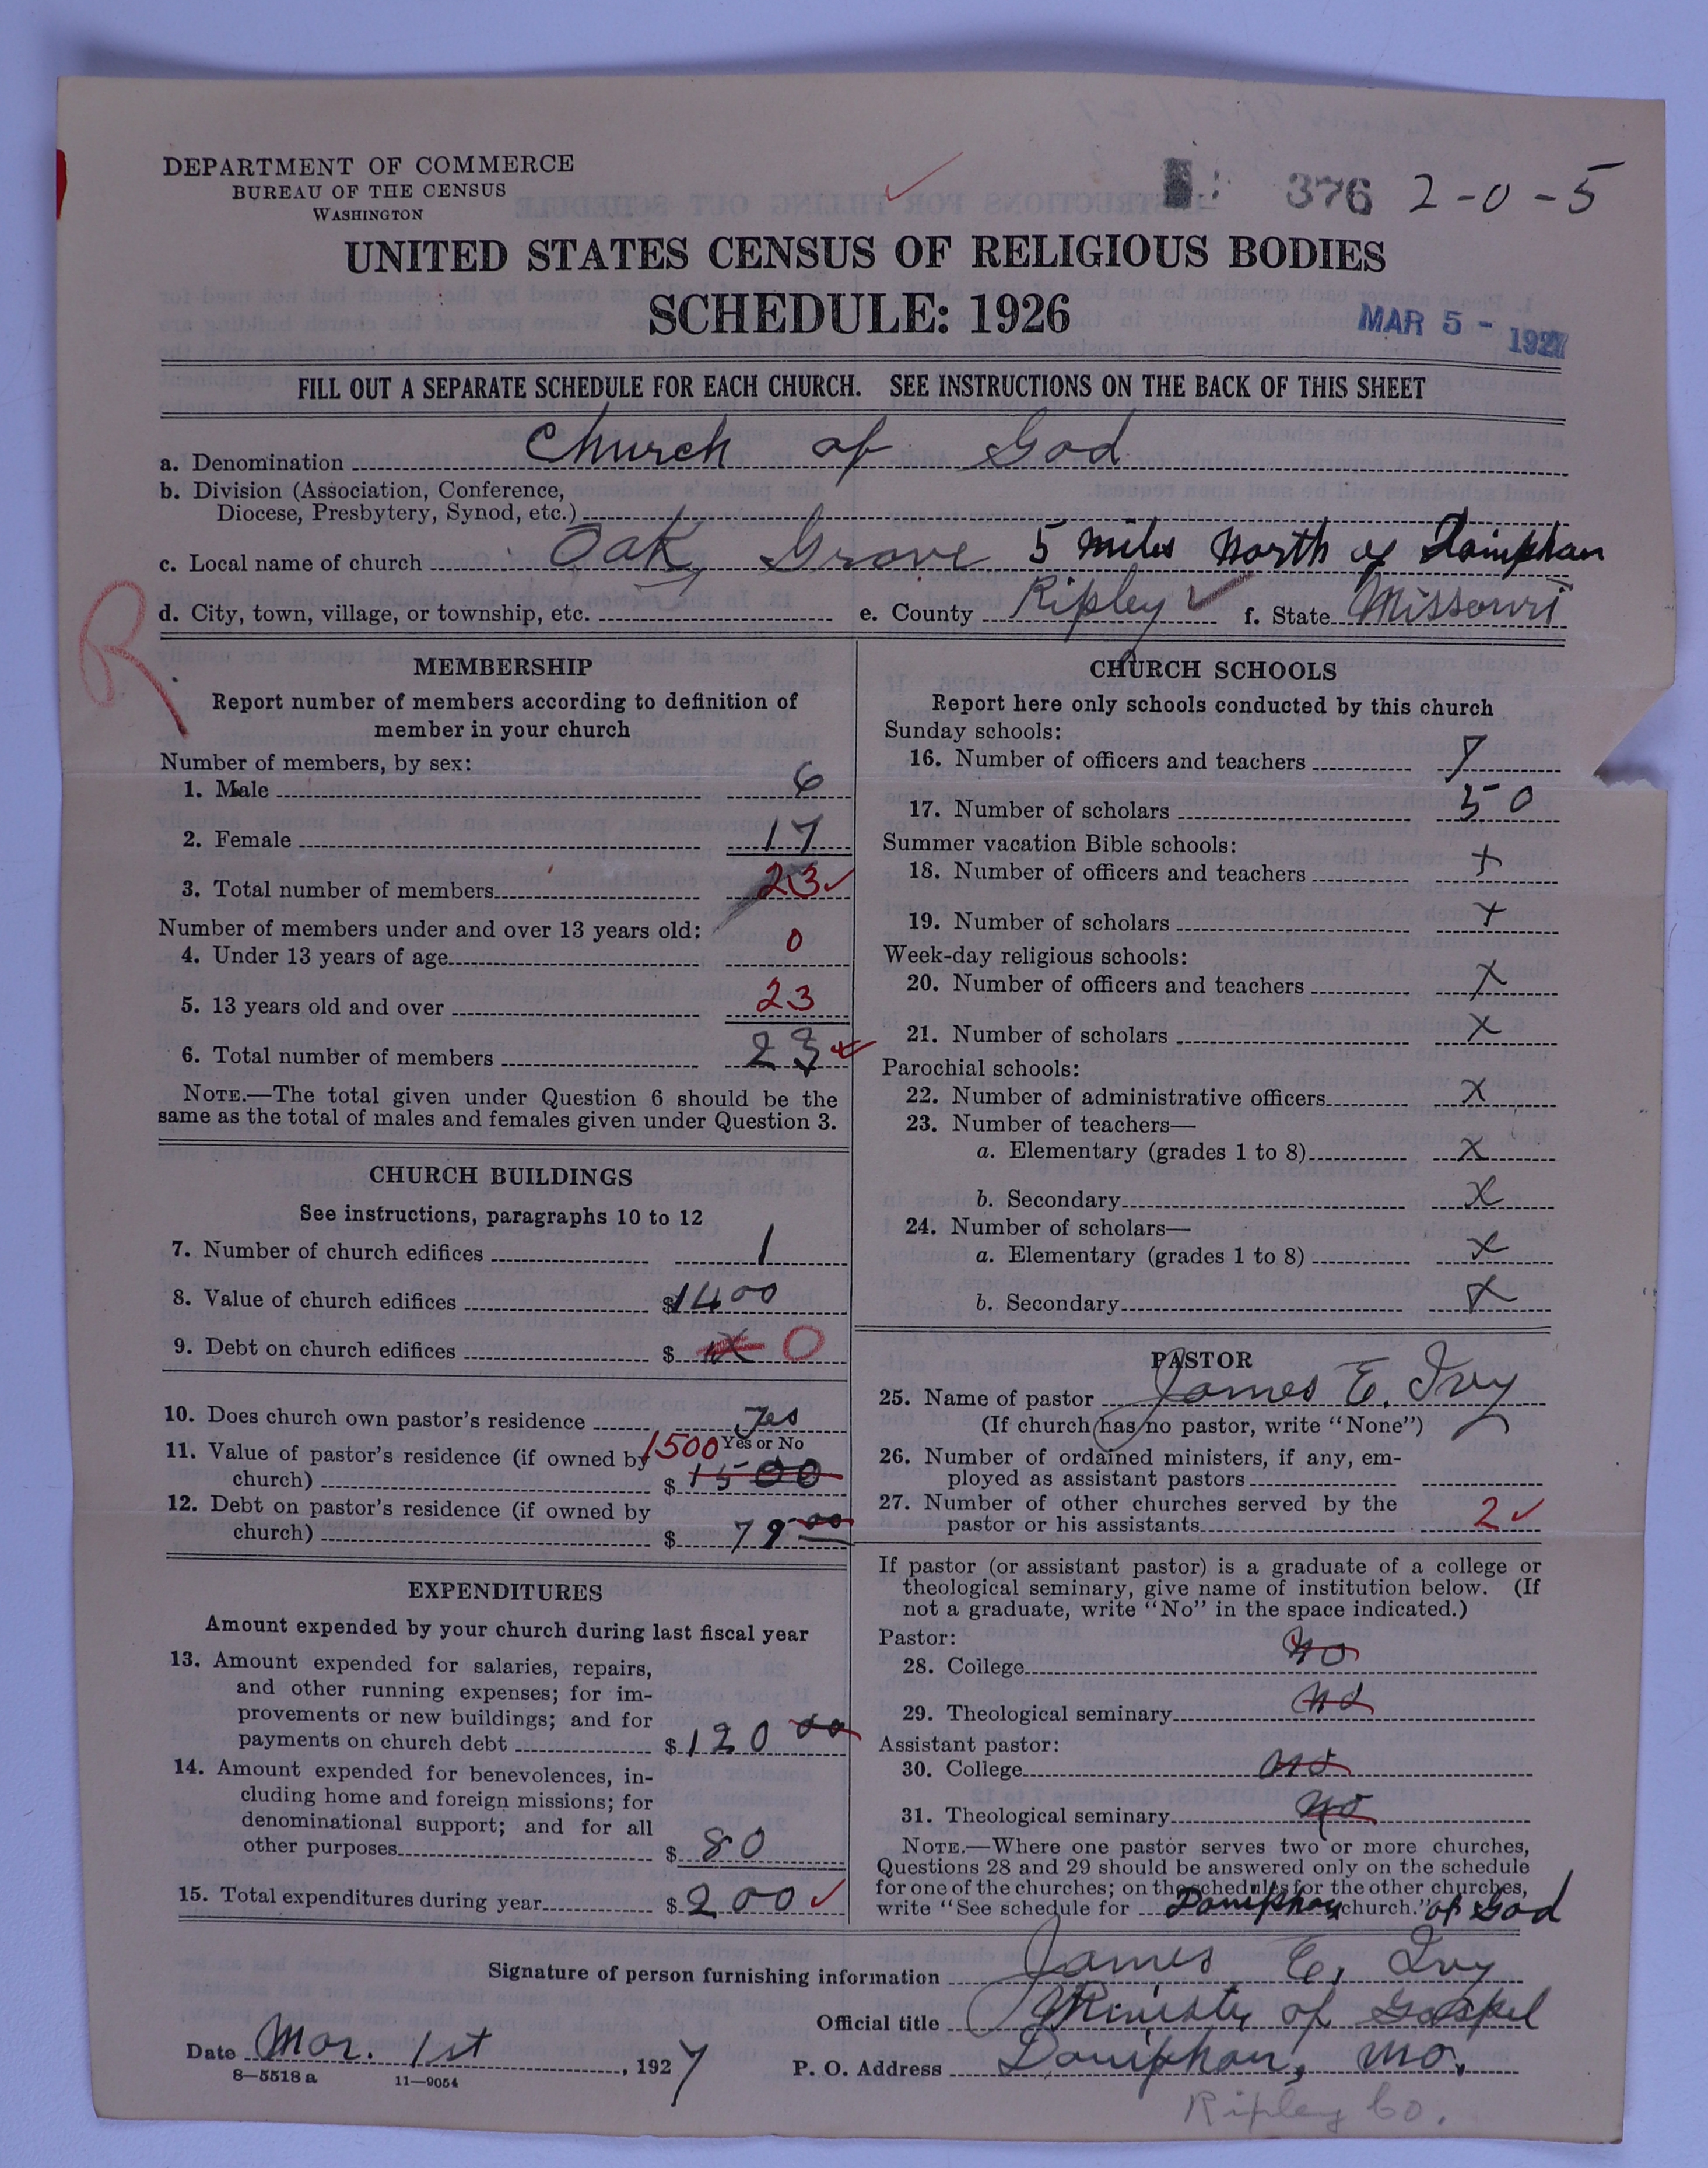 DEPARTMENT OF COMMERCE
BUREAU OF THE CENSUS
WASHINGTON
376 2-0-5
UNITED STATES CENSUS OF RELIGIOUS BODIES
SCHEDULE: 1926
MAR 5 - 1927
FILL OUT A SEPARATE SCHEDULE FOR EACH CHURCH. SEE INSTRUCTIONS ON THE BACK OF THIS SHEET
a. Denomination Church of God
b. Division (Association, Conference,
Diocese, Presbytery, Synod, etc.)
c. Local name of church Oak Grove 5 miles North of Doniphan
d. City, town, village, or township, etc. e. County Ripley f. State Missouri
R
MEMBERSHIP
Report number of members according to definition of
member in your church
Number of members, by sex:
1. Male 6
2. Female 17
3. Total number of members 23
Number of members under and over 13 years old:
4. Under 13 years of age 0
5. 13 years old and over 23
6. Total number of members 23
NOTE.—The total given under Question 6 should be the
same as the total of males and females given under Question 3.
CHURCH BUILDINGS
See instructions, paragraphs 10 to 12
7. Number of church edifices 1
8. Value of church edifices $1400
9. Debt on church edifices $ 0
10. Does church own pastor's residence yes
Yes or No
11. Value of pastor's residence (if owned by 1500
church) $ 1500
12. Debt on pastor's residence (if owned by
church) $ 79 00
EXPENDITURES
Amount expended by your church during last fiscal year
13. Amount expended for salaries, repairs,
and other running expenses; for im-
provements or new buildings; and for
payments on church debt $ 120 00
14. Amount expended for benevolences, in-
cluding home and foreign missions; for
denominational support; and for all
other purposes $ 80
15. Total expenditures during year $ 200
CHURCH SCHOOLS
Report here only schools conducted by this church
Sunday schools:
16. Number of officers and teachers 7
17. Number of scholars 50
Summer vacation Bible schools:
18. Number of officers and teachers x
19. Number of scholars x
Week-day religious schools:
20. Number of officers and teachers x
21. Number of scholars x
Parochial schools:
22. Number of administrative officers x
23. Number of teachers—
a. Elementary (grades 1 to 8) x
b. Secondary x
24. Number of scholars—
a. Elementary (grades 1 to 8) x
b. Secondary x
PASTOR
25. Name of pastor James E. Ivy
(If church has no pastor, write "None")
26. Number of ordained ministers, if any, em-
ployed as assistant pastors
27. Number of other churches served by the
pastor or his assistants 2
If pastor (or assistant pastor) is a graduate of a college or
theological seminary, give name of institution below. (If
not a graduate, write "No" in the space indicated.)
Pastor:
28. College no
29. Theological seminary no
Assistant pastor:
30. College no
31. Theological seminary no
NOTE.—Where one pastor serves two or more churches,
Questions 28 and 29 should be answered only on the schedule
for one of the churches; on the schedules for the other churches,
write "See schedule for Doniphan church." of God
Signature of person furnishing information James E. Ivy
Official title Minister of Gospel
Date Mar. 1st, 1927 P. O. Address Doniphan, Mo.
8—5518 a 11—9054
Ripley Co.